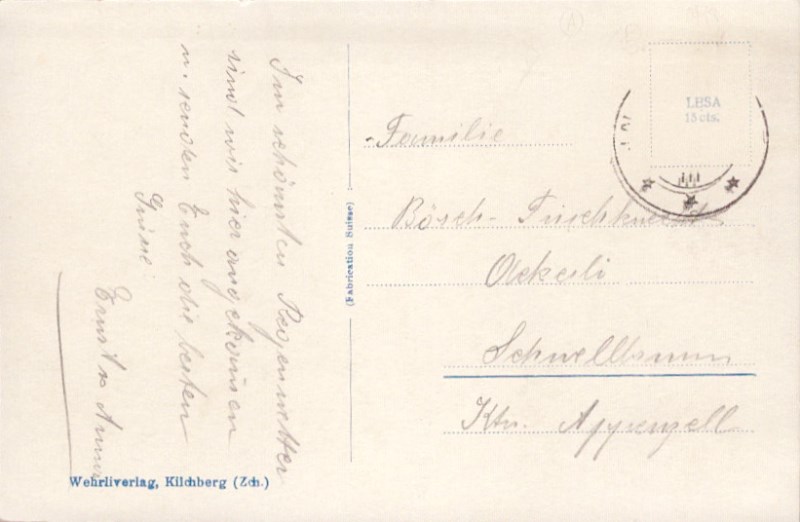 Im schönsten Regenwetter
sind wir hier angekommen
u. senden Euch die besten
Grüsse
Ernst u Anna
(Fabrication Suisse)
LESA
15 cts.
Familie
Bösch-
Schwellbrunn
Ktn. Appenzell
Wehrliverlag, Kilchberg (Zch.)